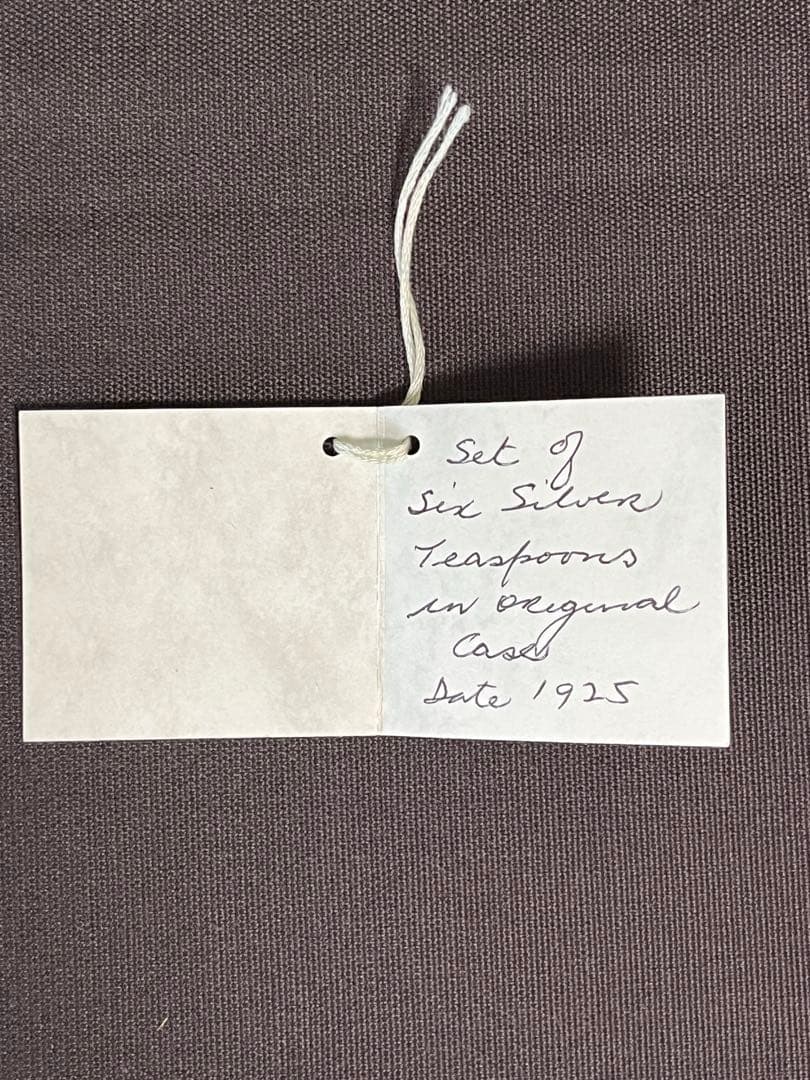 Set of
Six Silver
Teaspoons
in original
Case
Date 1925